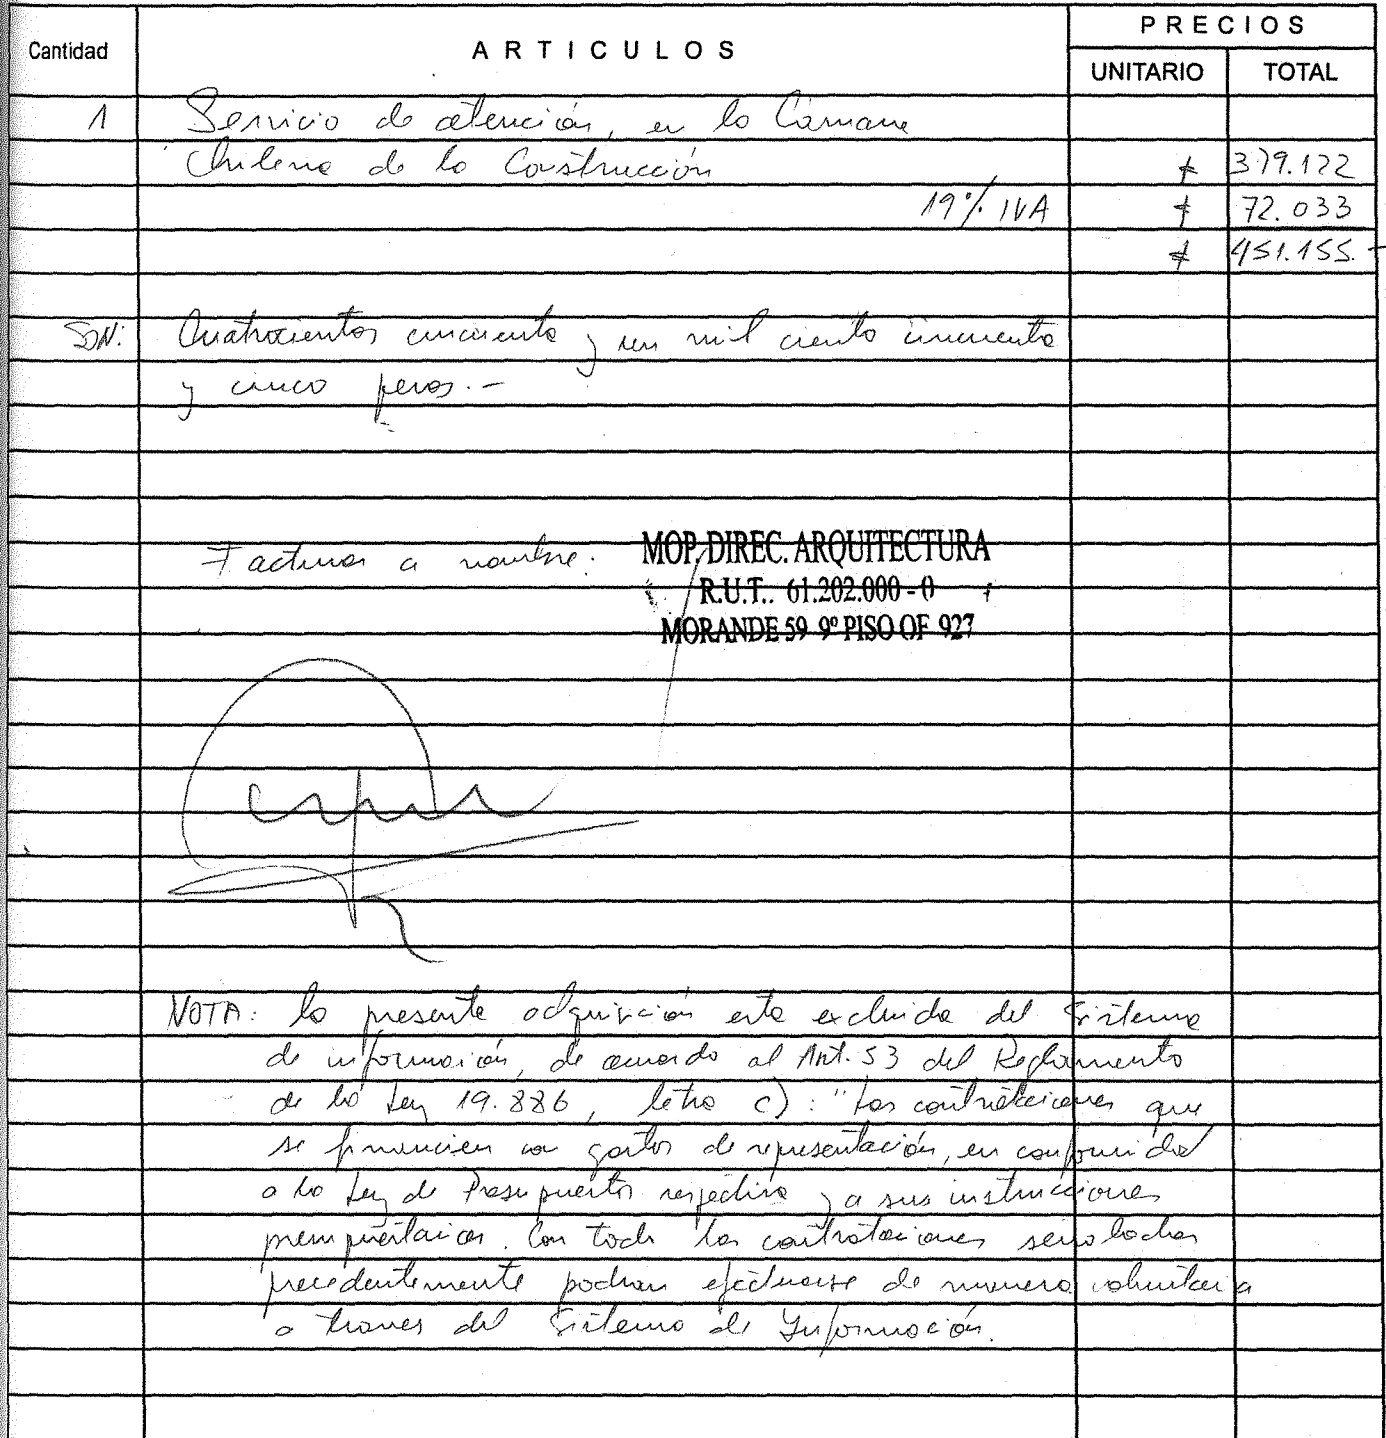 PRECIOS
Cantidad ARTICULOS
UNITARIO TOTAL
1 Servicio de atención, en la Cámara
Chilena de la Construcción $ 379.122
19% IVA $ 72.033
$ 451.155.-
SON: Cuatrocientos cincuenta y un mil ciento cincuenta
y cinco pesos.-
Facturar a nombre: MOP, DIREC. ARQUITECTURA
R.U.T.. 61.202.000 - 0
MORANDE 59 9º PISO OF 927
NOTA: la presente adquisición esta excluida del Sistema
de información, de acuerdo al Art. 53 del Reglamento
de la Ley 19.886, letra c): "Las contrataciones que
se financien con gastos de representación, en conformidad
a la Ley de Presupuestos respectiva y a sus instrucciones
presupuestarias. Con todo las contrataciones señaladas
precedentemente podran efectuarse de manera voluntaria
a traves del Sistema de Información.